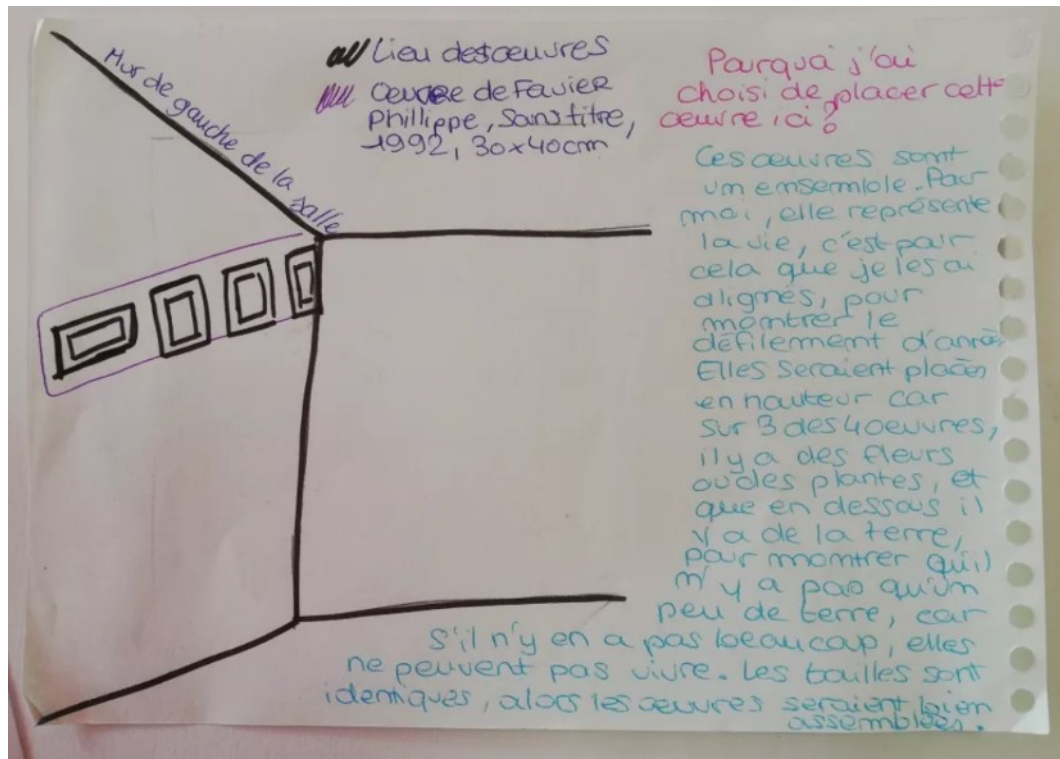 Mur de gauche de la salle
Lieu des œuvres
Œuvre de Favier
Phillippe, Sans titre,
1992, 30x40cm
Pourquoi j'ai
choisi de placer cette
œuvre ici?
Ces œuvres sont
un ensemble. Pour
moi, elle représente
la vie, c'est pour
cela que je les ai
alignés, pour
montrer le
défilement d'années
Elles seraient placées
en hauteur car
sur 3 des 4 oeuvres,
il y a des fleurs
ou des plantes, et
que en dessous il
y a de la terre,
pour montrer qu'il
n'y a pas qu'un
peu de terre, car
s'il n'y en a pas beaucoup, elles
ne peuvent pas vivre. Les tailles sont
identiques, alors les œuvres seraient bien
assemblées.